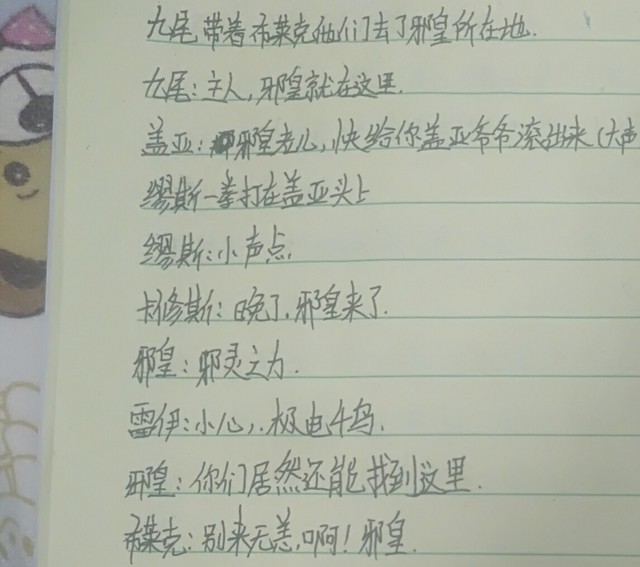 九尾带着布莱克他们去了邪皇所在地.
九尾:主人,邪皇就在这里.
盖亚:邪皇老儿,快给你盖亚爷爷滚出来(大声
缪斯一拳打在盖亚头上
缪斯:小声点.
卡修斯:晚了.邪皇来了.
邪皇:邪灵之力.
雷伊:小心,极电千鸟.
邪皇:你们居然还能找到这里.
布莱克:别来无恙,啊!邪皇.